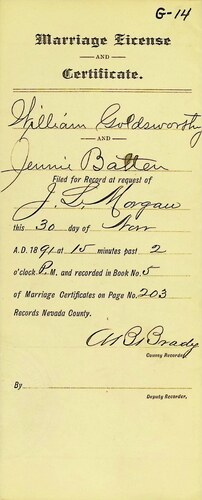 G-14
Marriage License
AND
Certificate.
William Goldsworthy
AND
Jennie Batten
Filed for Record at request of
J. L. Morgan
this 30 day of Nov
A.D. 1891 at 15 minutes past 2
o'clock P.M. and recorded in Book No. 5
of Marriage Certificates on Page No. 203
Records Nevada County.
Brady
County Recorder.
By
Deputy Recorder.